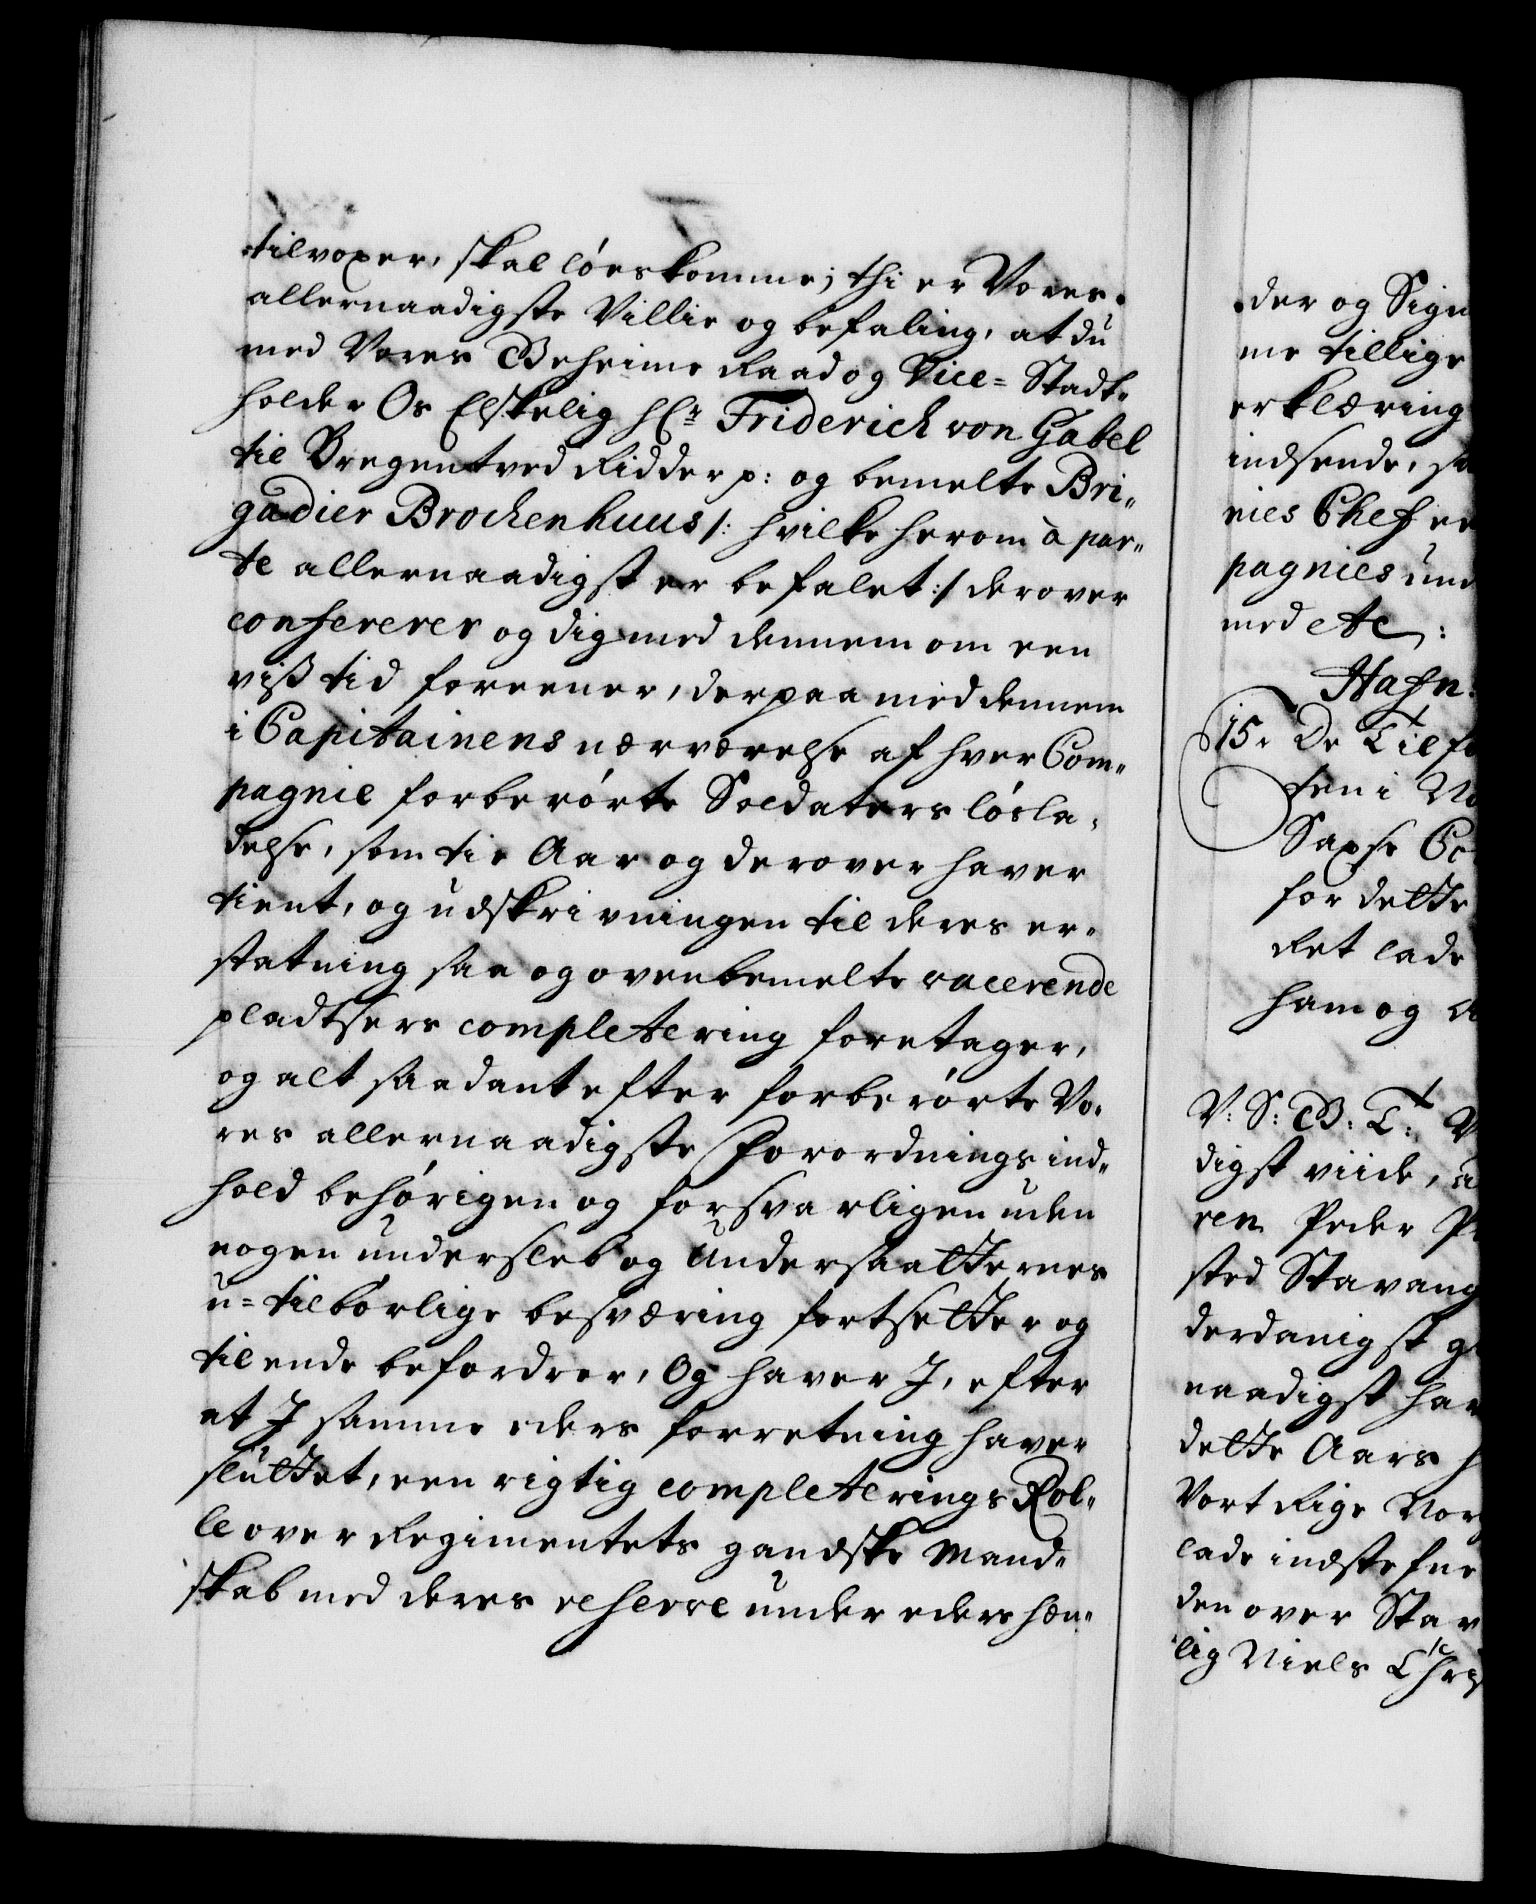 tilvoxer, skal löeskomme; thi er Vores
allernaadigste Villie og befaling, at du
med Vores Geheime Raad og Vice-Stadt-
holder Os Elskelig Hr. Friderich von Gabel
til Bregentved Ridder p: og bemelte Bri-
gadier Brochenhuus /: hvilke herom à par-
te allernaadigst er befalet :/ derover
confererer og dig med dennem om een
viß tid foreener, derpaa med dennem
i Capitainens nærværelse af hver Com-
pagnie forberörte Soldaters lösla-
delse, som tie Aar og derover haver
tient, og udskrivningen til deres er-
statning saa og ovenbemelte vacerende
pladtsers completering foretager,
og alt saadant efter forberörte Vo-
res allernaadigste Forordnings ind-
hold behörigen og forsvarligen uden
nogen undersleb og Undersaatternes
u-tilbörlige besværing fortsetter og
til ende befordrer, Og haver I, efter
at I samme eders forretning haver
sluttet, een rigtig completerings Rol-
le over Regimentets gandske Mand-
skab med deres reserve under eders hæn-
der og Sign
me tillige
erklæring
indsende, sa
nies Chef
pagnies
med etc:
Hafn:
15. De
ten i
Saxse
for dette
Ret lade
ham og
V: S: G: T:
digst viide,
ren Peder
sted Stavang
derdanigst
naadigst har
dette Aars
Vort Rige Nor
lade indstefne
den over Stav
lig Niels Chris